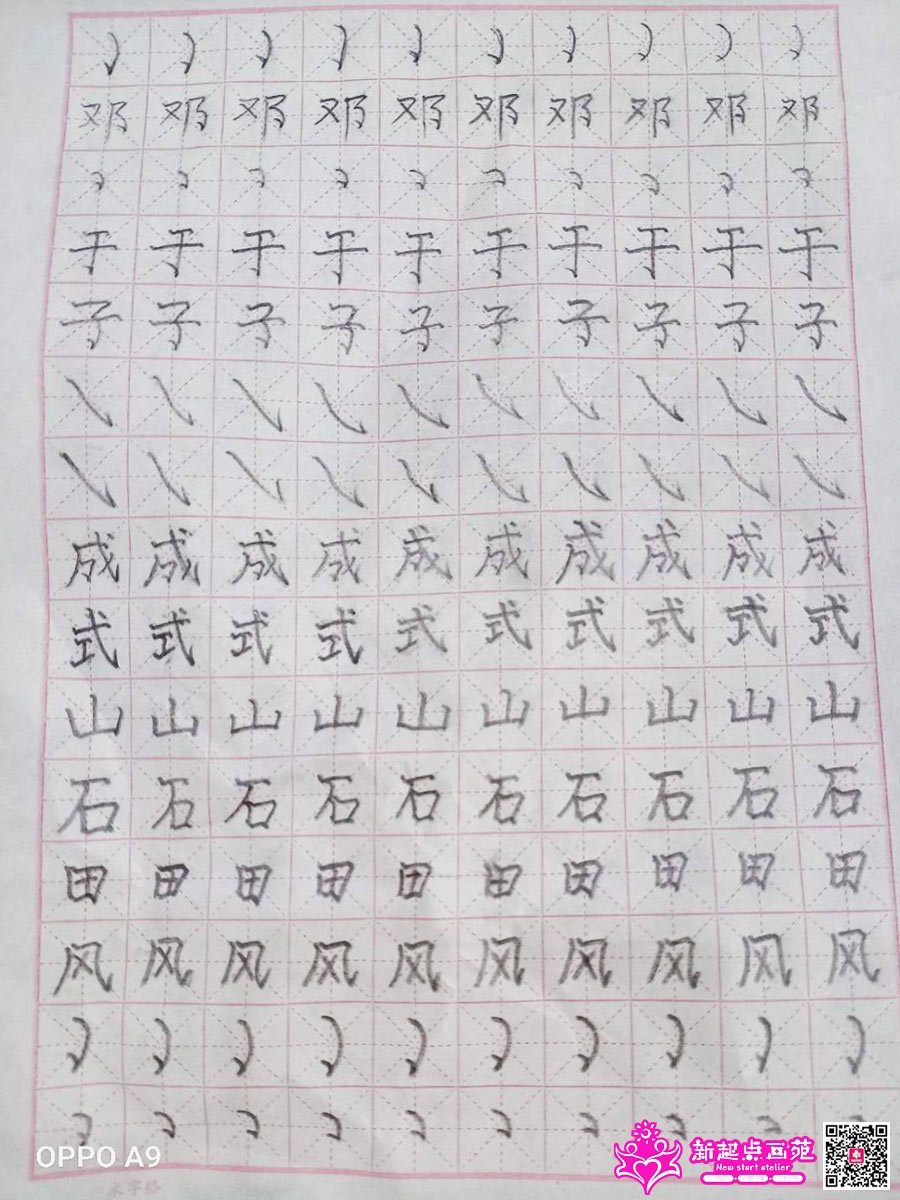 邓邓邓邓邓邓邓邓邓邓
于于于于于于于于于于
子子子子子子子子子子
成成成成成成成成成成
式式式式式式式式式式
山山山山山山山山山山
石石石石石石石石石石
田田田田田田田田田田
风风风风风风风风风风
OPPO A9
新起点画苑
New start atelier
米字格